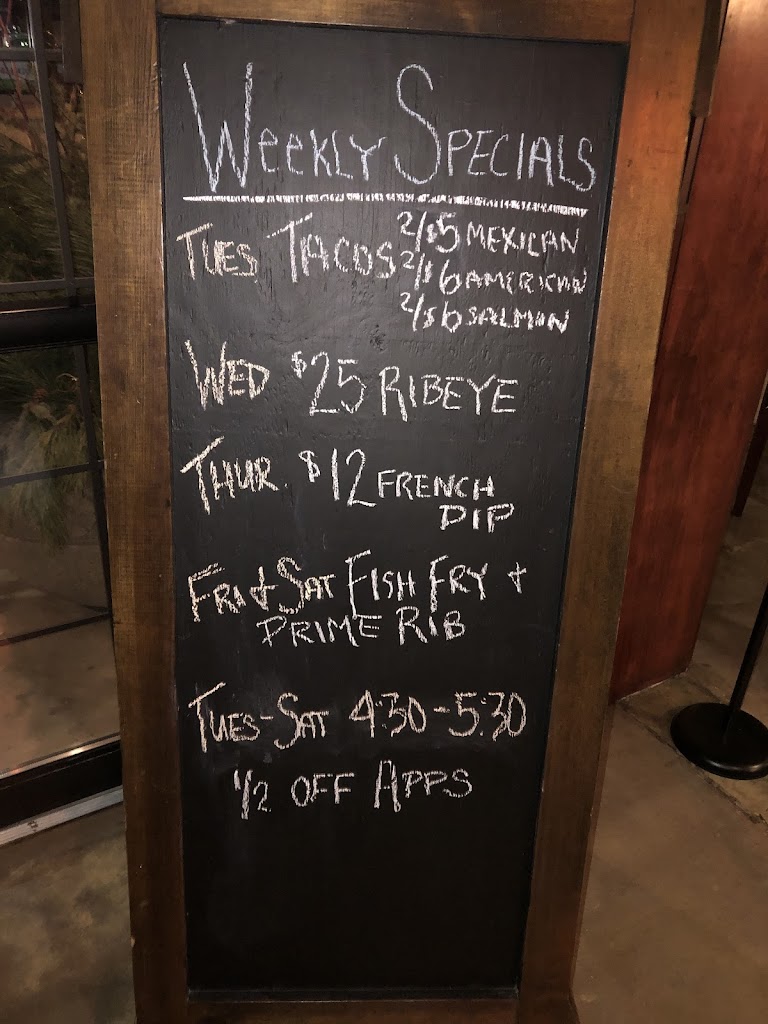 WEEKLY SPECIALS
TUES TACOS 2/$5 MEXICAN
2/$6 AMERICAN
2/$6 SALMON
WED $25 RIBEYE
THUR. $12 FRENCH
DIP
FRI & SAT FISH FRY +
PRIME RIB
TUES-SAT 4:30-5:30
1/2 OFF APPS